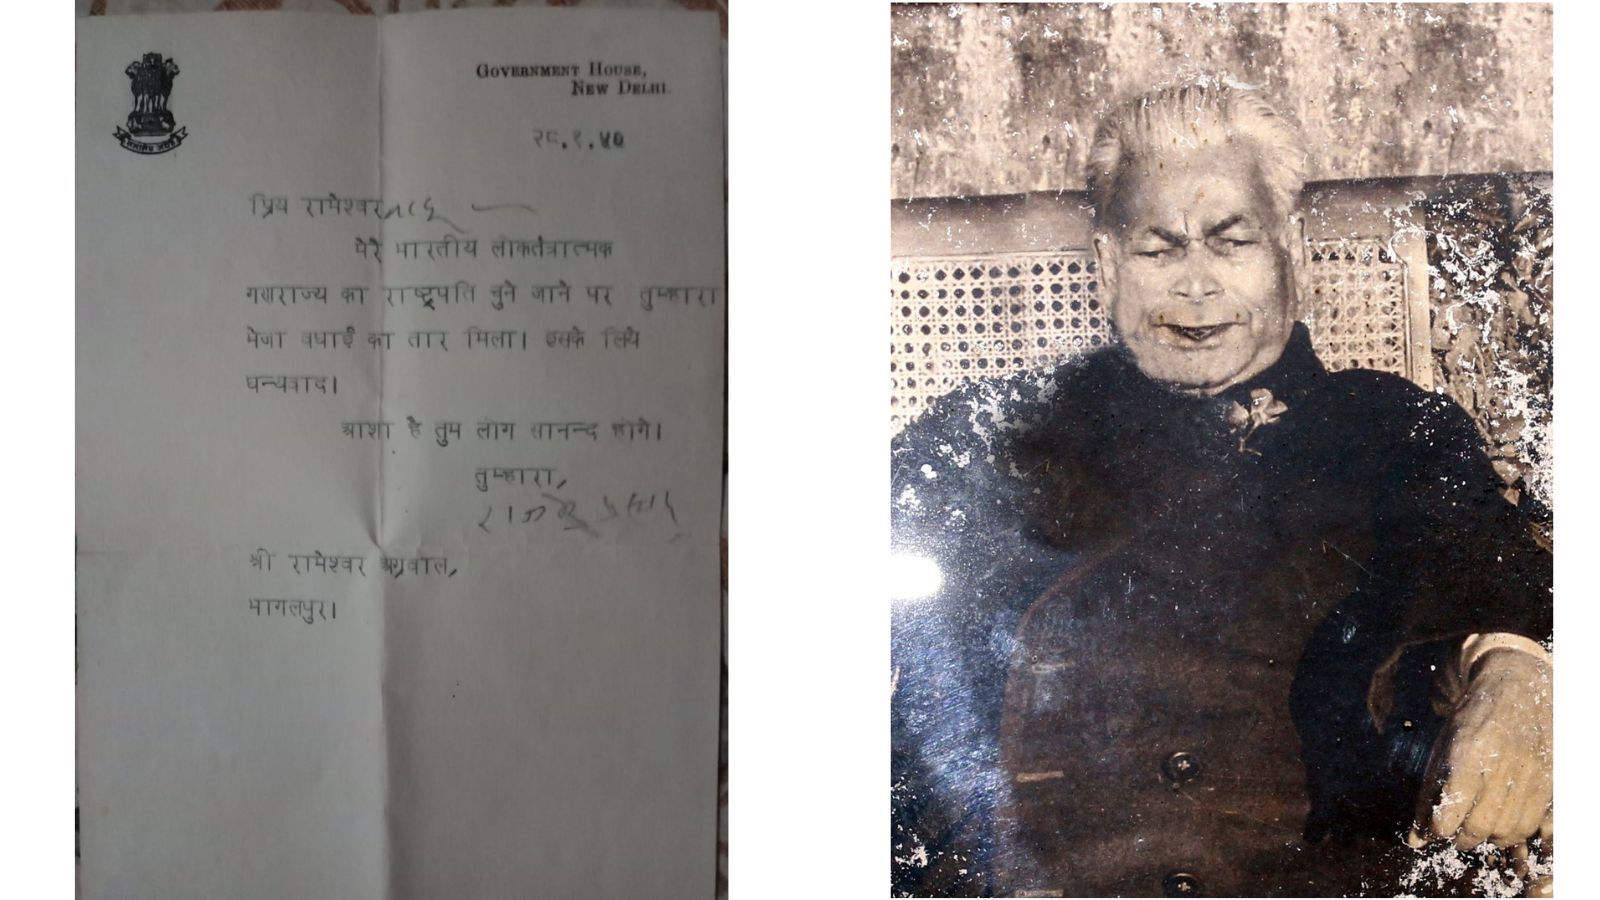 GOVERNMENT HOUSE,
NEW DELHI.
२८.१.५०
प्रिय रामेश्वर
मेरे भारतीय लोकतंत्रात्मक
गणराज्य का राष्ट्रपति चुने जाने पर तुम्हारा
भेजा बधाई का तार मिला। इसके लिये
धन्यवाद।
आशा है तुम लोग सानन्द होगे।
तुम्हारा,
राजेन्द्र प्रसाद
श्री रामेश्वर अग्रवाल,
भागलपुर।